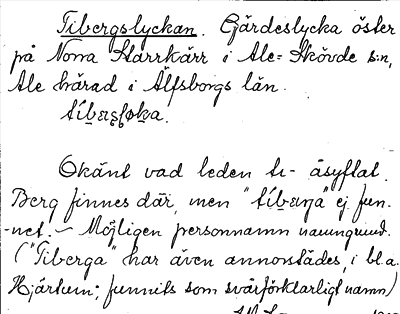 Tibergslyckan. Gärdeslycka öster
på Norra Starrkärr i Ale-Skövde s:n,
Ale härad i Älfsborgs län.
Okänt vad leden ti- åsyftat.
Berg finnes där, men "tíbærja" ej fun-
-net. - Möjligen personnamn namngrund.
("Tiberga" har även annorstädes, i bl.a.
Hjärtum; funnits som svårförklarligt namn)